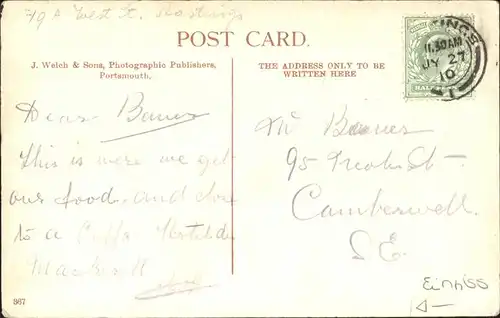 79A West St. Hastings
POST CARD.
J. Welch & Sons, Photographic Publishers,
Portsmouth.
THE ADDRESS ONLY TO BE
WRITTEN HERE
11.30AM
JY 27
10
HALFPENNY
Dear Barnes
This is were we get
our food and close
to a
Mackerell
Mr Barnes
95 St
Camberwell
S.E.
Einriss
367